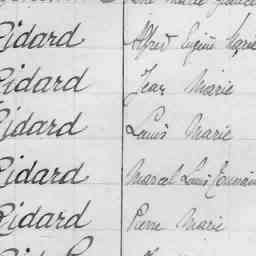 Ridard Alfred Eugène Marie
Ridard Jean Marie
Ridard Louis Marie
Ridard Marcel Louis Germain
Ridard Pierre Marie